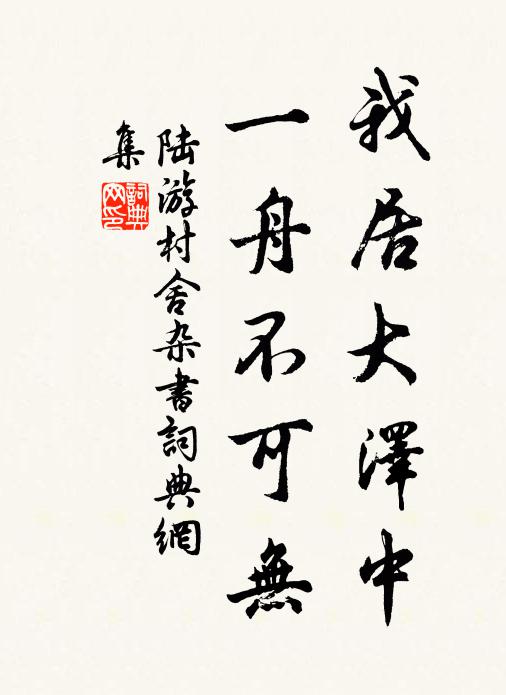 我居大澤中
一舟不可無
陆游村舍杂書詞典網
集
詞典
网印